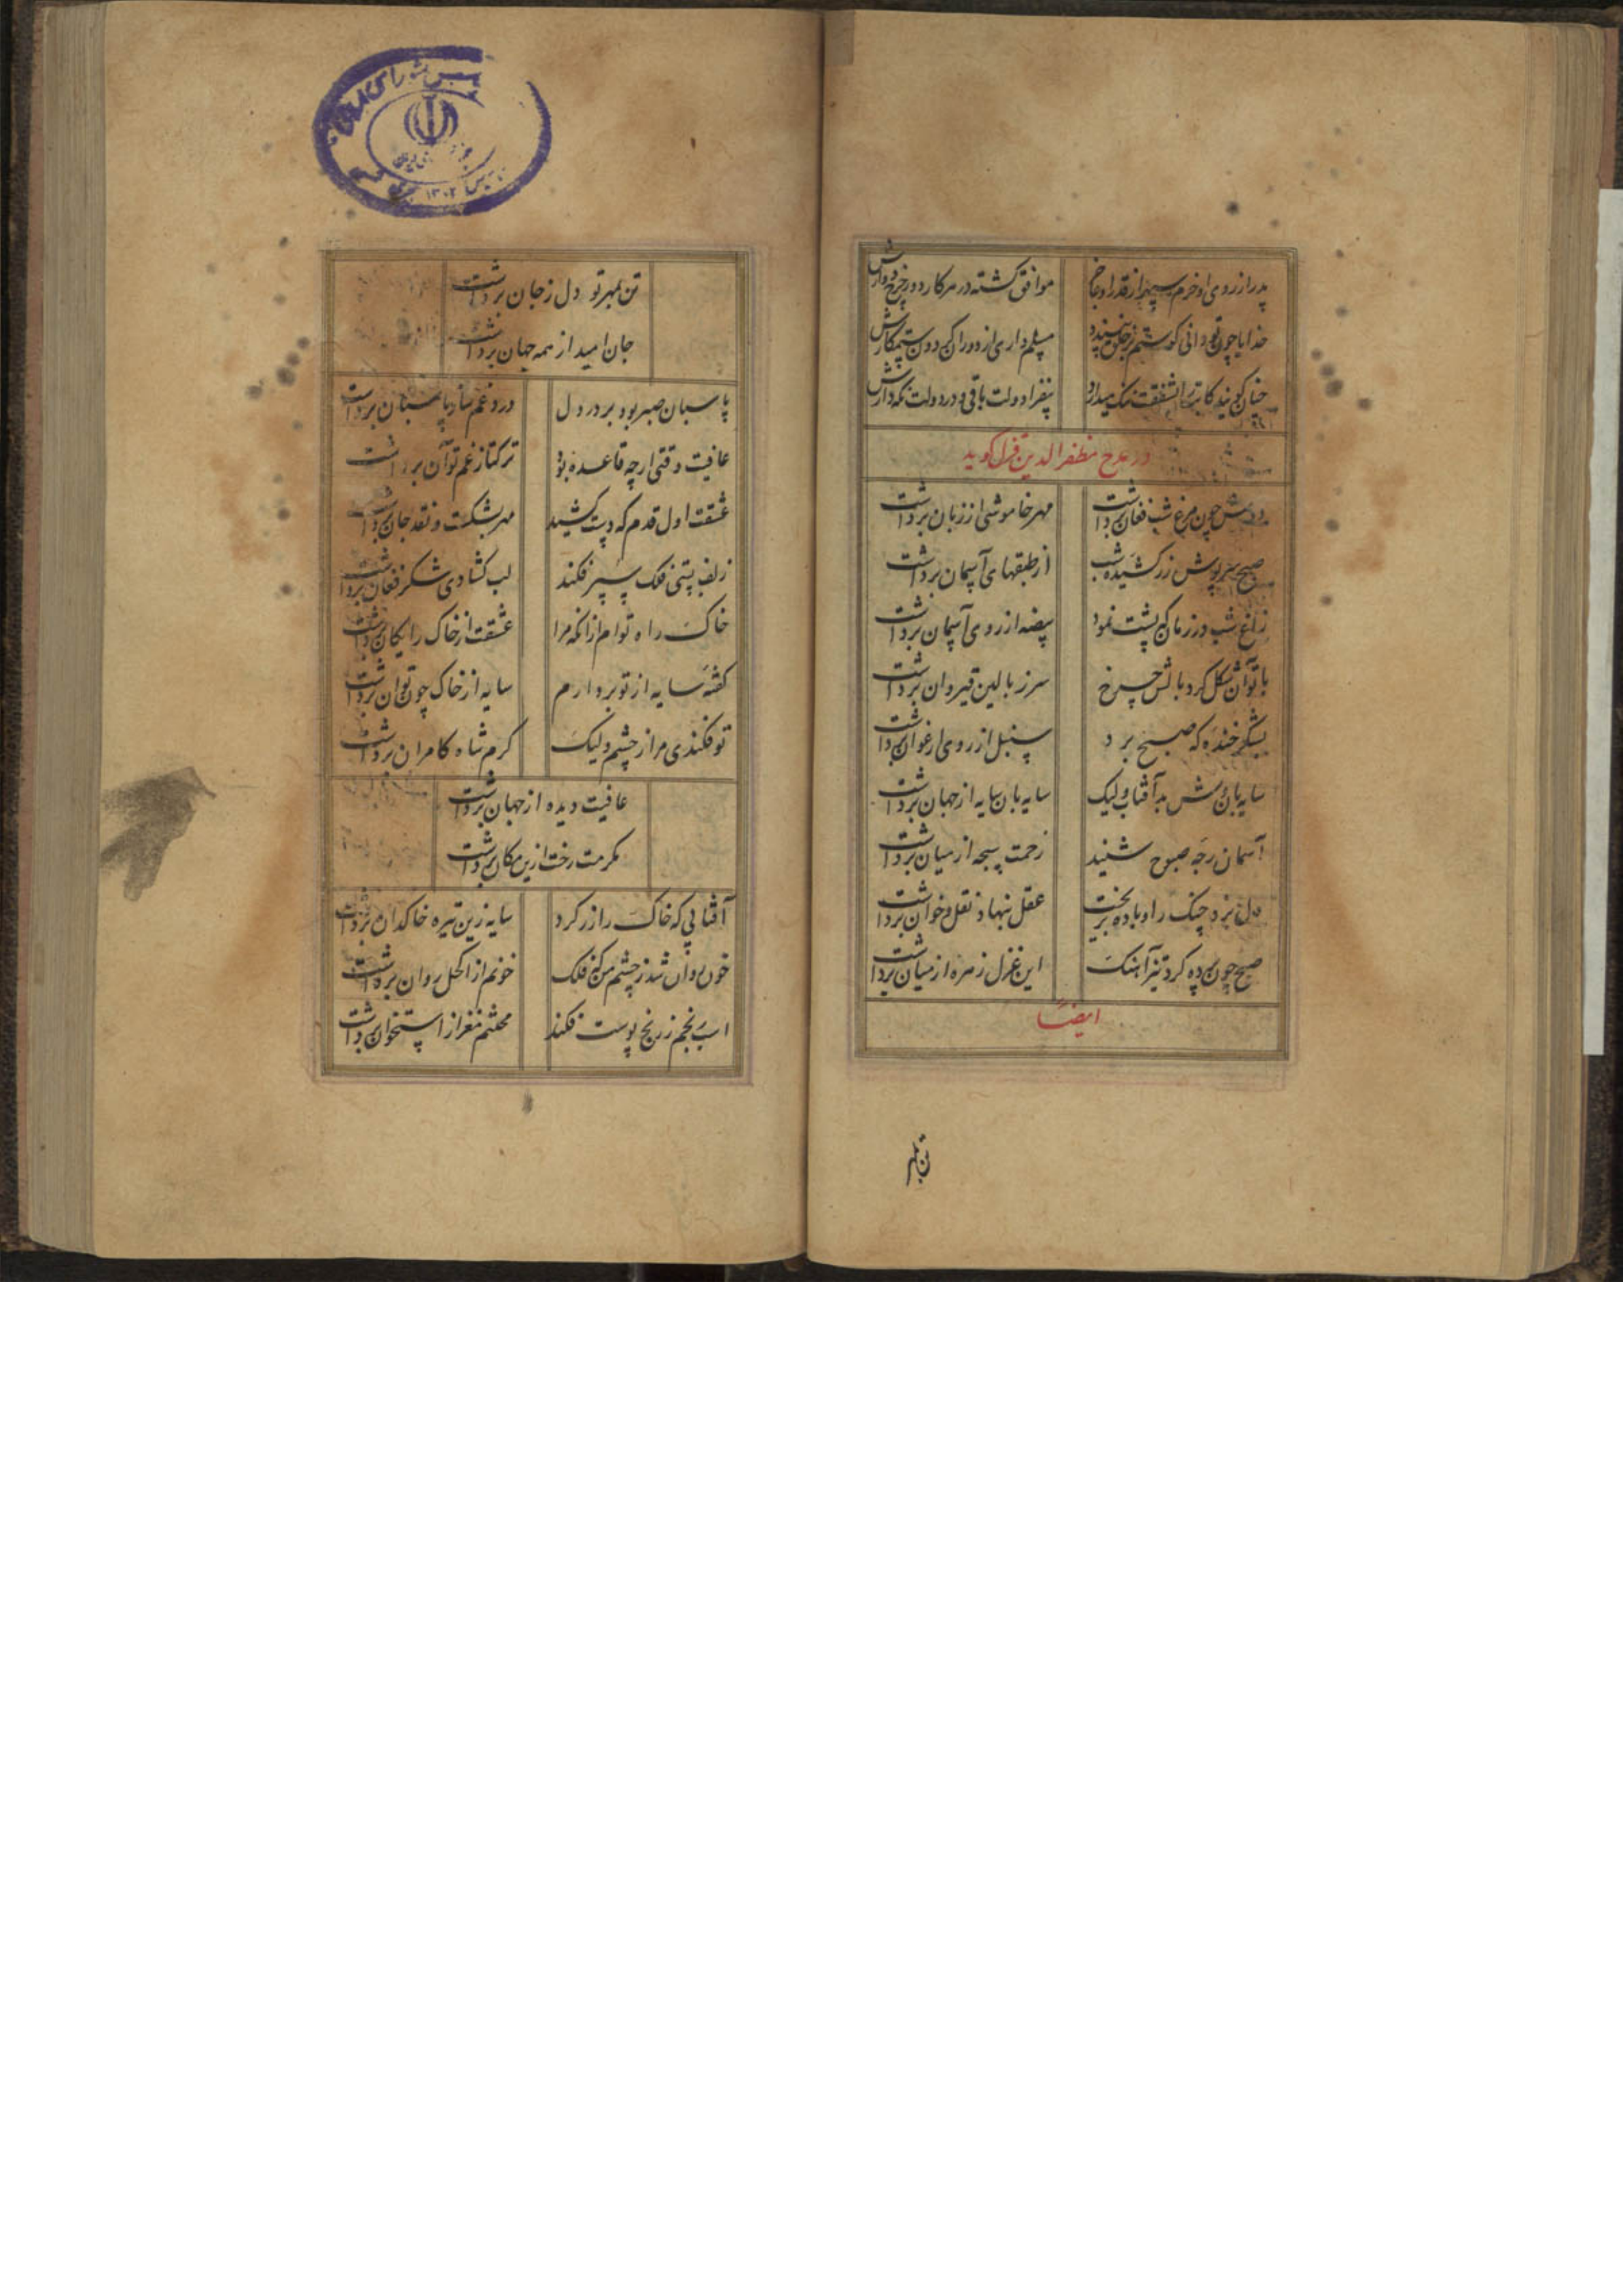 پدر از روی او خرم سپهر از قدر او
موافق گشته در هر کار دور چرخ دوارش
خدایا چون تو دانی کو ستم بر خلق نپسندد
مسلم داری از دوران گردون ستمکارش
موفق
در مدح مظفرالدین قزل گوید
دوش چون مرغ شب فغان برداشت
مهر خاموشی از زبان برداشت
صبح سرپوش زر کشیده شب
از طبقهای آسمان برداشت
زاغ شب در زمان که پشت نمود
بیضه از روی آسمان برداشت
با تو آن شکل کرد بالش چرخ
سر ز بالین قیروان برداشت
بشکرخنده که صبح برد
سنبل از روی ارغوان برداشت
سایه بان شد آفتاب ولیک
سایه بان سایه از جهان برداشت
آسمان صبوح شنید
زحمت سبحه از میان برداشت
دل بزد چنگ را و باده بریخت
عقل بنهاد نقل و خوان برداشت
صبح چون پرده کرد تیز آهنگ
این غزل زهره از میان برداشت
ایضاً
تن بمهر
تن بمهر تو دل ز جان برداشت
جان امید از همه جهان برداشت
پاسبان صبر بود بر در دل
درد غم شاد پاسبان برداشت
عافیت وقتی ارچه قاعده بود
ترکتاز غم تو آن برداشت
عشقت اول قدم که دست کشید
مهر بشکست و نقد جان برداشت
زلف پستی فلک سپر فکند
لب گشادی شکر فغان برداشت
خاک راه توام از آنکه مرا
عشقت از خاک رایگان برداشت
گفتۀ سایه از تو بردارم
سایه از خاک چون توان برداشت
تو فکندی مرا ز چشم ولیک
کرم شاه کامران برداشت
عافیت دیده از جهان برداشت
مکرمت رخت ازین مکان برداشت
آفتابی که خاک را زر کرد
سایه زین تیره خاکدان برداشت
خون روان شد ز چشم من که فلک
خونم از اکحل روان برداشت
اسب رنجم ز رنج پوست فکند
محنتم مغز از استخوان برداشت
۱۳۰۲